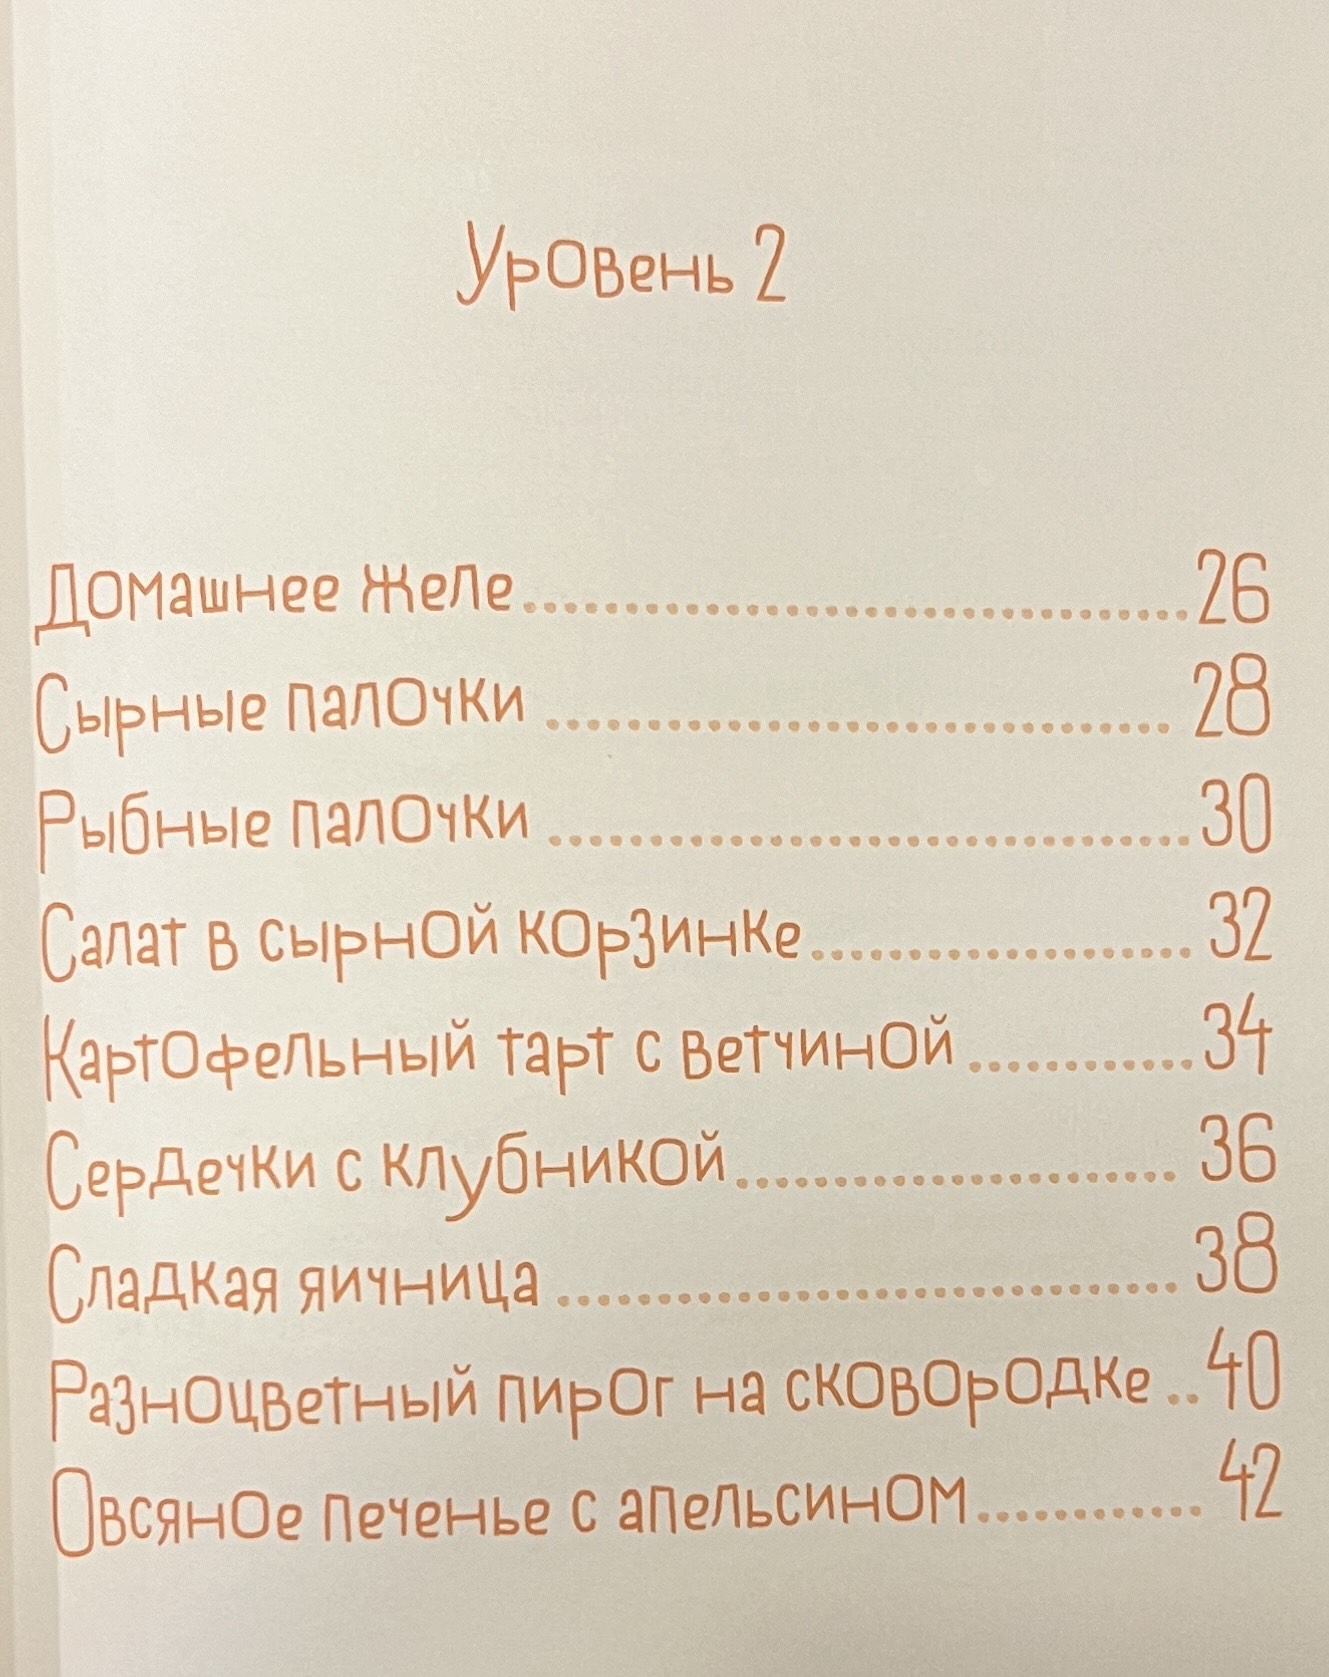 Уровень 2
Домашнее желе..................................26
Сырные палочки ............................... 28
Рыбные палочки ................................30
Салат в сырной корзинке................... 32
Картофельный тарт с ветчиной............34
Сердечки с клубникой...................... 36
Сладкая яичница ............................... 38
Разноцветный пирог на сковородке ..40
Овсяное печенье с апельсином............ 42